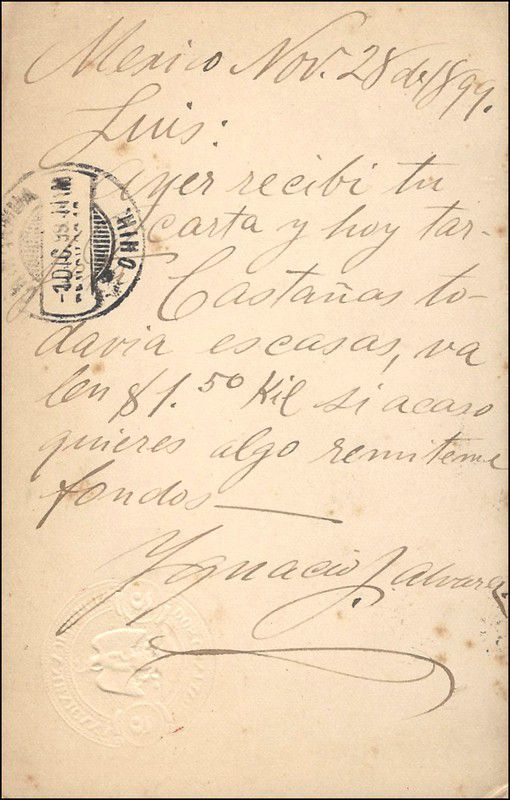 Mexico Nov. 28 de 1899.
Luis:
Ayer recibi tu
carta y hoy tar-
Castañas to-
davia escasas, va
len $1.50 Kil si acaso
quieres algo remiteme
fondos
Ygnacio J. Alvarez